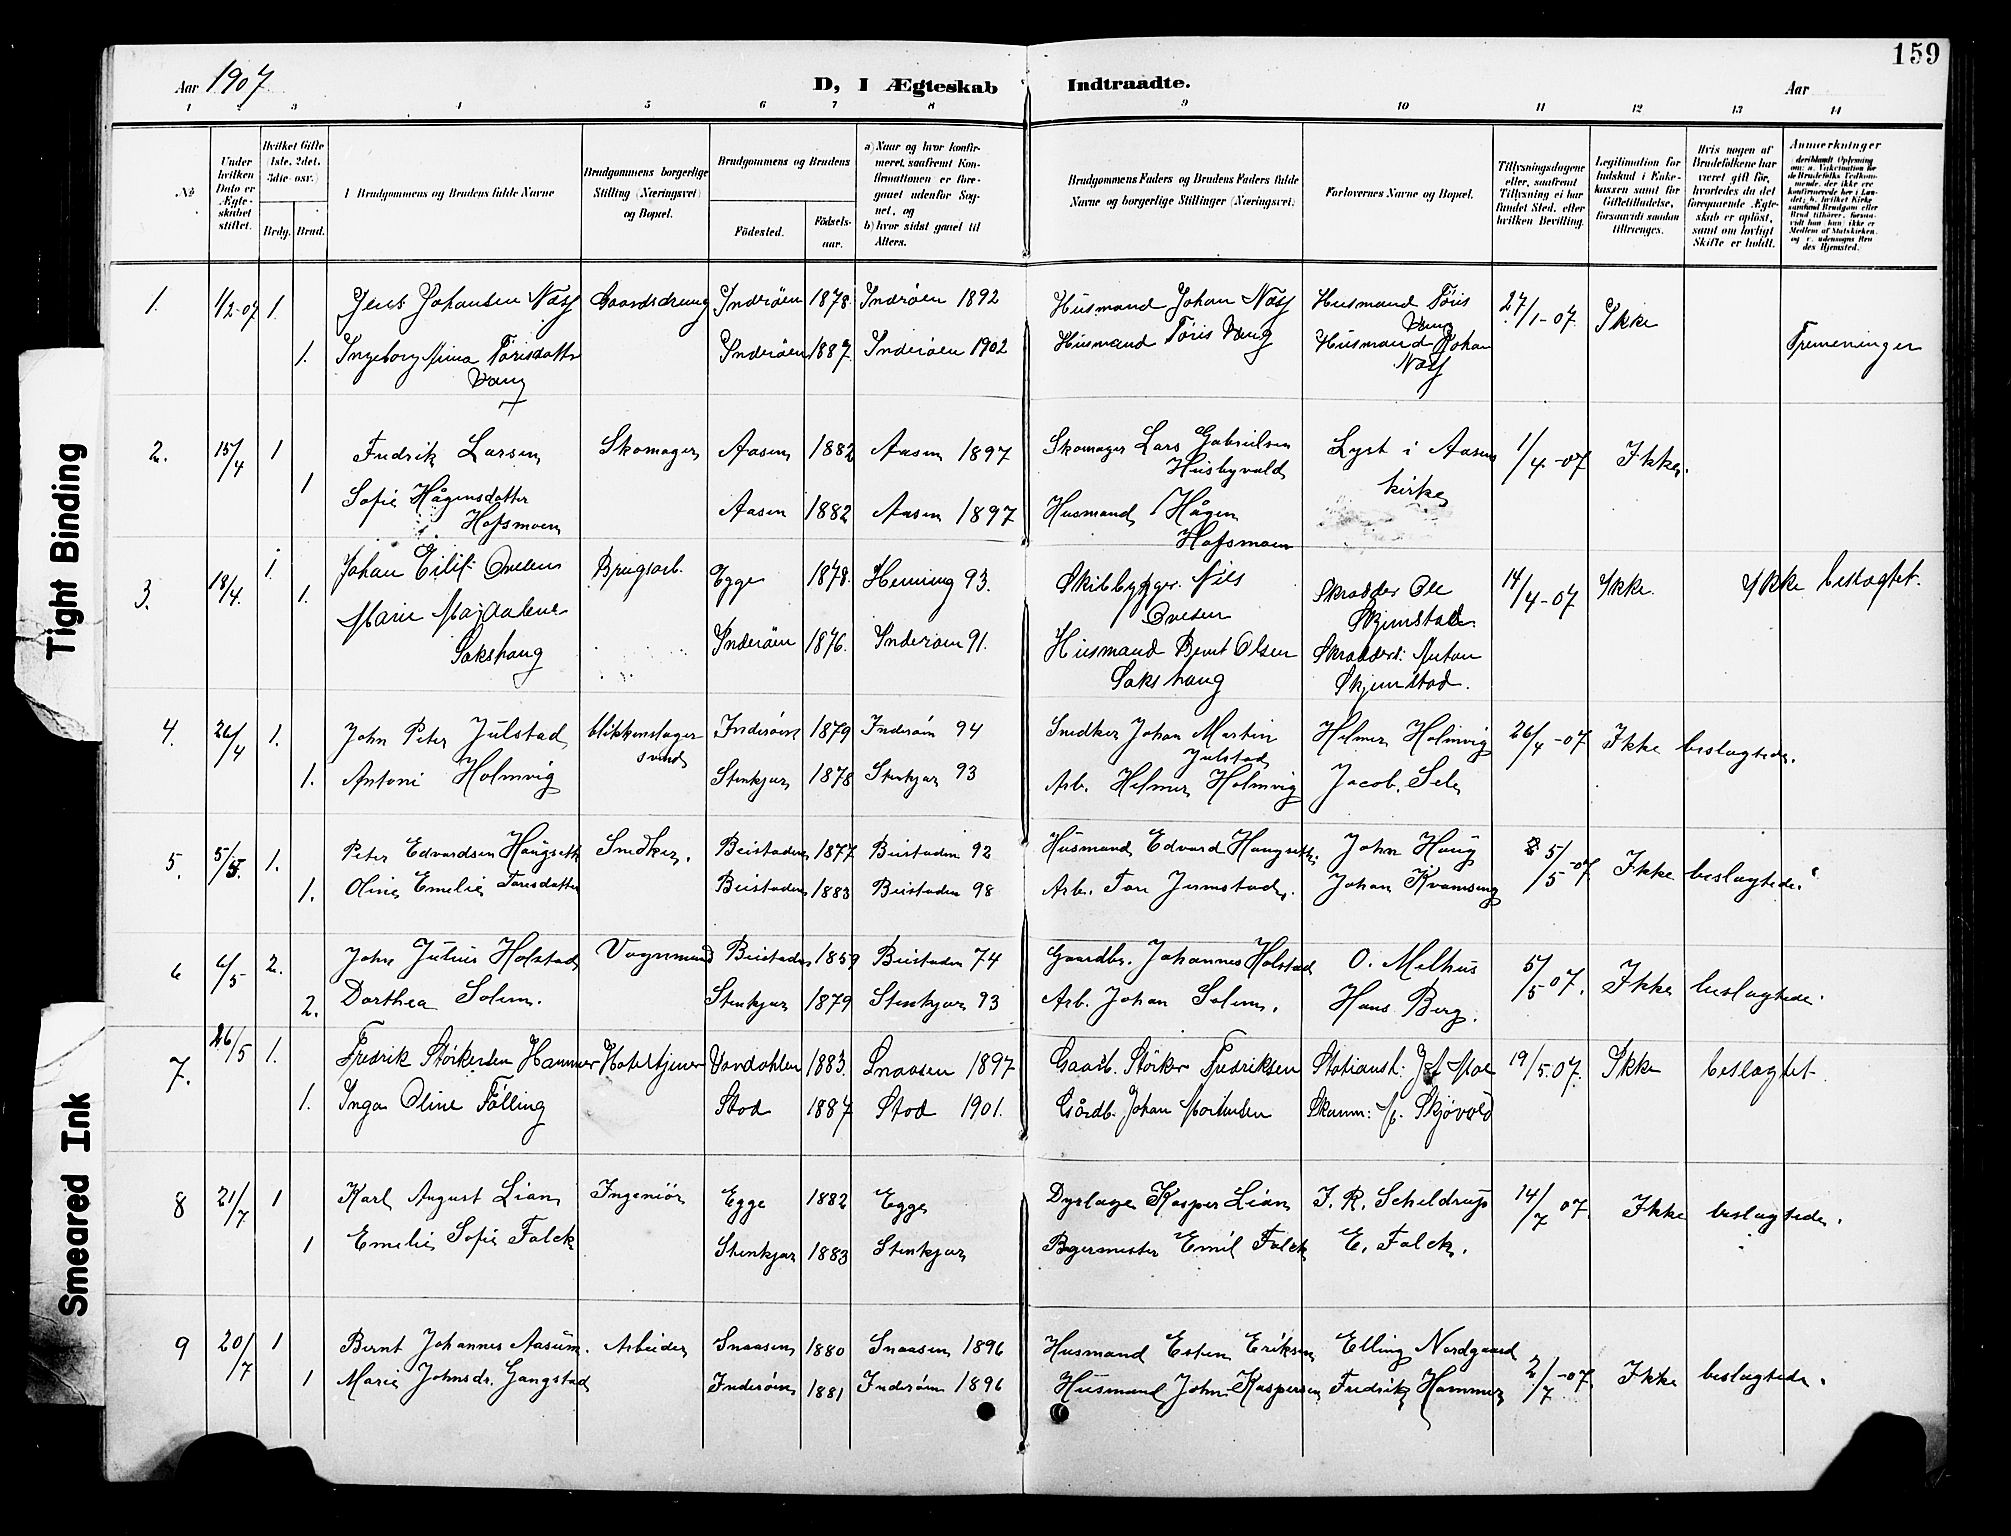 159
Aar 1907
D, I Ægteskab Indtraadte.
Aar
1 2 3 4 5 6 7 8 9 10 11 12 13 14
№
Under hvilken Dato er Ægteskabet stiftet.
Hvilket Gifte (1ste, 2det, 3die osv.)
Brdg. Brud.
1 Brudgommens og Brudens fulde Navne
Brudgommens borgerlige Stilling (Næringsvei) og Bopæl.
Brudgommens og Brudens
Fødested. Fødselsaar.
a) Naar og hvor konfirmeret, saafremt Konfirmationen er foregaaet udenfor Sognet, og
b) hvor sidst gaaet til Alters.
Brudgommens Faders og Brudens Faders fulde Navne og borgerlige Stillinger (Næringsvei)
Forlovernes Navne og Bopæl.
Tillysningsdagene eller, saafremt Tillysning ei har fundet Sted, efter hvilken Bevilling.
Legitimation for Indskud i Enkekassen samt for Giftetilladelse, forsaavidt saadan tiltrænges.
Hvis nogen af Brudefolkene har været gift før, hvorledes da det foregaaende Ægteskab er opløst, samt om lovligt Skifte er holdt.
Anmærkninger
1. 1/2-07 1. Jens Johansen Næss Gaardsdreng Inderøen 1878. Inderøen 1892 Husmand Johan Næss Husmand Tøris Vang 27/1-07. Ikke
1. Ingeborg Mina Tørisdatter Vang Inderøen 1887. Inderøen 1902 Husmand Tøris Vang Husmand Johan Næss Tremeninger
2. 15/4 1 Fredrik Larsen Skomager Aasen 1882 Aasen 1897 Skomager Lars Gabrielsen Husbyvald Lyst i Aasens kirke 1/4-07 Ikke.
1 Sofie Hågensdatter Hofsmoen Aasen 1882 Aasen 1897 Husmand Hågen Hofsmoen
3. 18/4. 1 Johan Eilif Ovesen Brugsarb. Egge 1878. Henning 93. Skibbygger Nils Ovesen Skrædder Ole Skjemstad. 14/4-07 Ikke. Ikke beslægtet.
1. Marie Magdalene Sakshaug Inderøen 1876. Inderøen 91. Husmand Bernt Olsen Sakshaug Skrædder: Anton Skjemstad.
4. 26/4 1. John Peter Julstad blikkenslagersvend Inderøen 1879 Inderøen 94 Snedker Johan Martin Julstad Helmer Holmvig 26/4-07 Ikke beslægtede.
1. Antoni Holmvig Stenkjær 1878 Stenkjær 93 Arb. Helmer Holmvig Jacob Sele
5. 5/5. 1. Peter Edvardsen Haugseth Snedker. Beistaden 1877 Beistaden 92 Husmand Edvard Haugseth. John Haug 5/5-07 Ikke beslægtede.
1. Oline Emelie Toresdatter Beistaden 1883 Beistaden 98 Arb. Tore Jermstad. Johan Kvamseng
6 6/5 2. John Julius Holstad Vognmand Beistaden 1859 Beistaden 74 Gaardbr. Johannes Holstad O. Melhus 5/5 07. Ikke beslægtede.
2. Dorthea Solem. Stenkjær 1879 Stenkjær 93 Arb. Johan Solem. Hans Berg.
7. 26/5 1. Fredrik Størkersen Hammer Hotel tjener Vandahlen 1883. Snaasen 1897 Gaarb. Størker Fredriksen Stationst: Moe 19/5.07. Ikke beslægtet
1. Inga Oline Følling Stod 1887 Stod 1901. Gårdb. Johan Mortensen M. Skjøvold
8 21/7 1 Karl August Lian Ingeniør Egge 1882 Egge Dyrlæge Kasper Lian I. R. Scheldrup 14/7 07. Ikke beslægtede.
1 Emelie Sofie Falck Stenkjær 1883 Stenkjær Bagermester Emil Falck E. Falck.
9 20/7 1 Bernt Johannes Aasum. Arbeider Snaasen 1880 Snaasen 1896 Husmand Esten Eriksen Elling Nordgaard 2/7-07. Ikke beslægtede.
1 Marie Johnsdr. Gangstad Inderøen 1881 Inderøen 1896 Husmand John Kaspersen Fredrik Hammer
Tight Binding
Smeared Ink